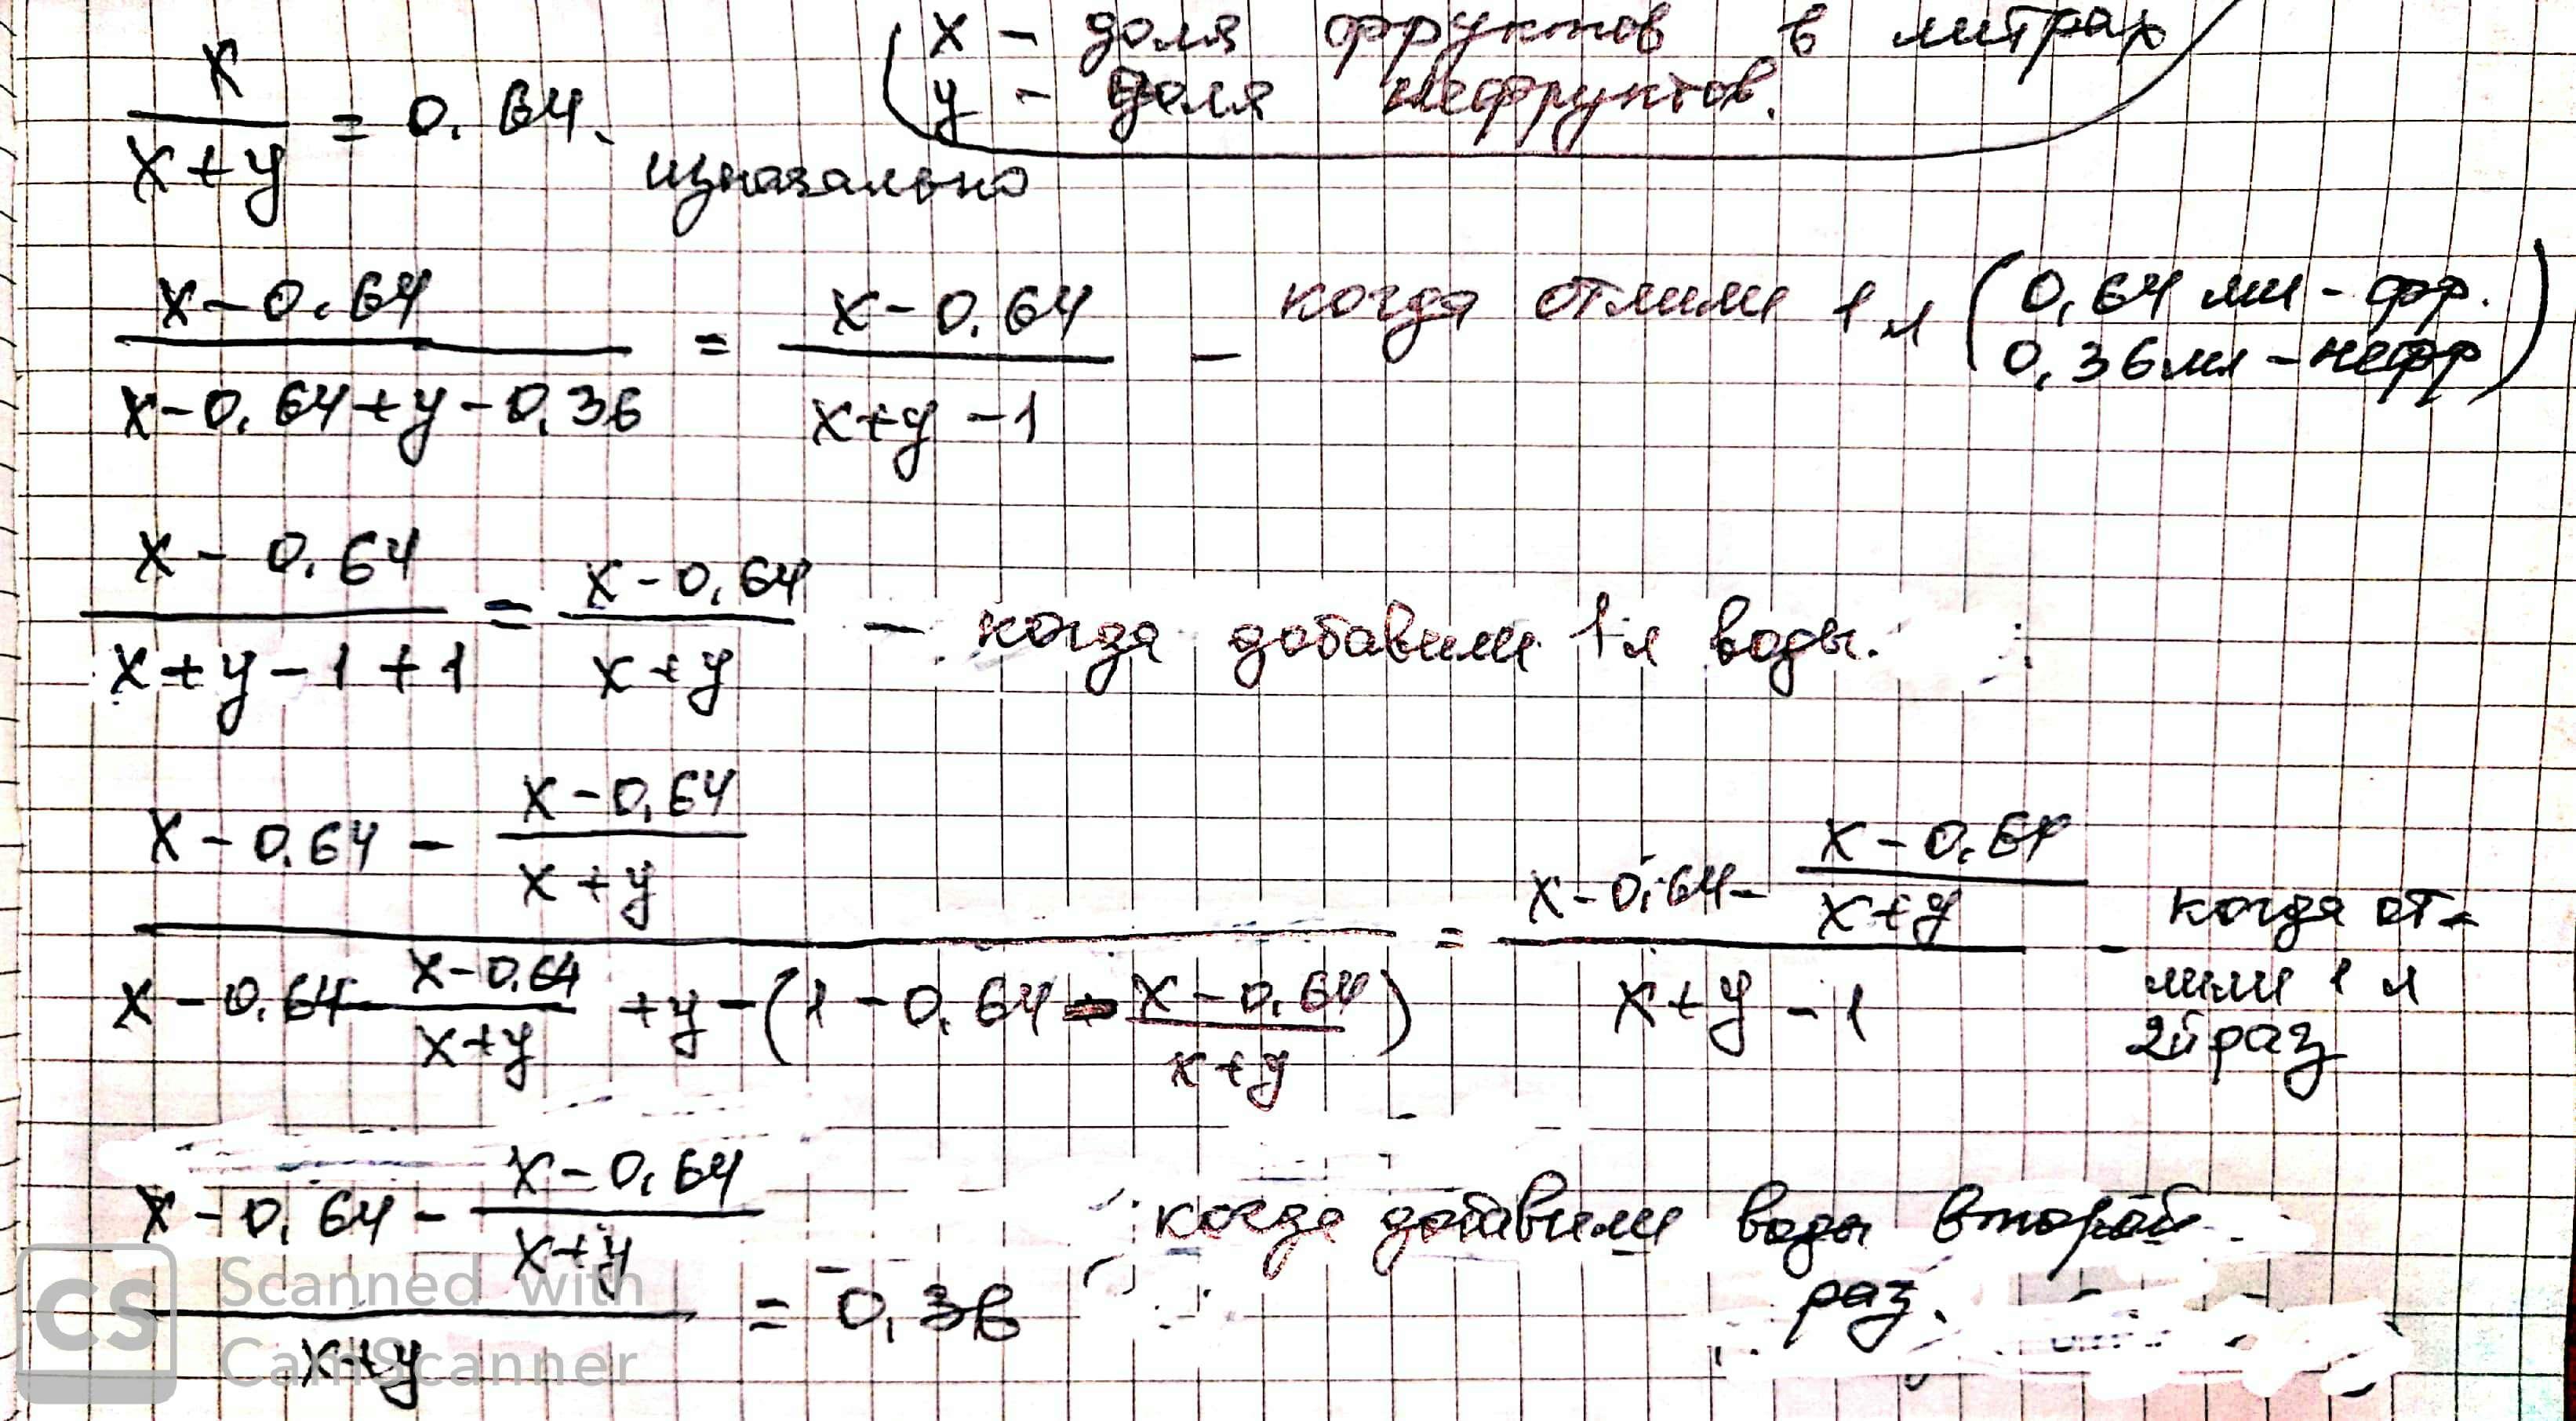 x - доля фруктов в литрах
y - доля нефруктов.
x/(x+y) = 0.64.
изначально
(x-0.64)/(x-0.64+y-0.36) = (x-0.64)/(x+y-1) - когда отлили 1 л (0,64 мл - фр. 0,36 мл - нефр)
(x-0.64)/(x+y-1+1) = (x-0.64)/(x+y) - когда добавили 1 л воды.
(x-0.64-(x-0.64)/(x+y))/(x-0.64-(x-0.64)/(x+y)+y-(1-0.64-(x-0.64)/(x+y))) = (x-0.64-(x-0.64)/(x+y))/(x+y-1) - когда от-
лили 1 л
2й раз
(x-0.64-(x-0.64)/(x+y))/(x+y) = 0,36 когда добавили воды второй
раз.
CS Scanned with
CamScanner